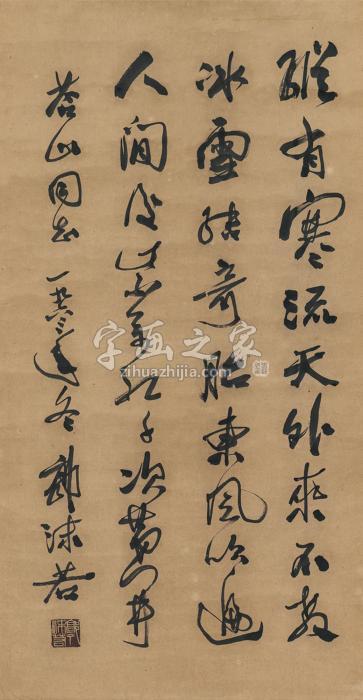 縱有寒流天外來不教
冰雪結奇胎東風吹遍
人間後紫萬紅千次第開
山同志 一九六三年冬 郭沫若
字画之家
zihuazhijia.com